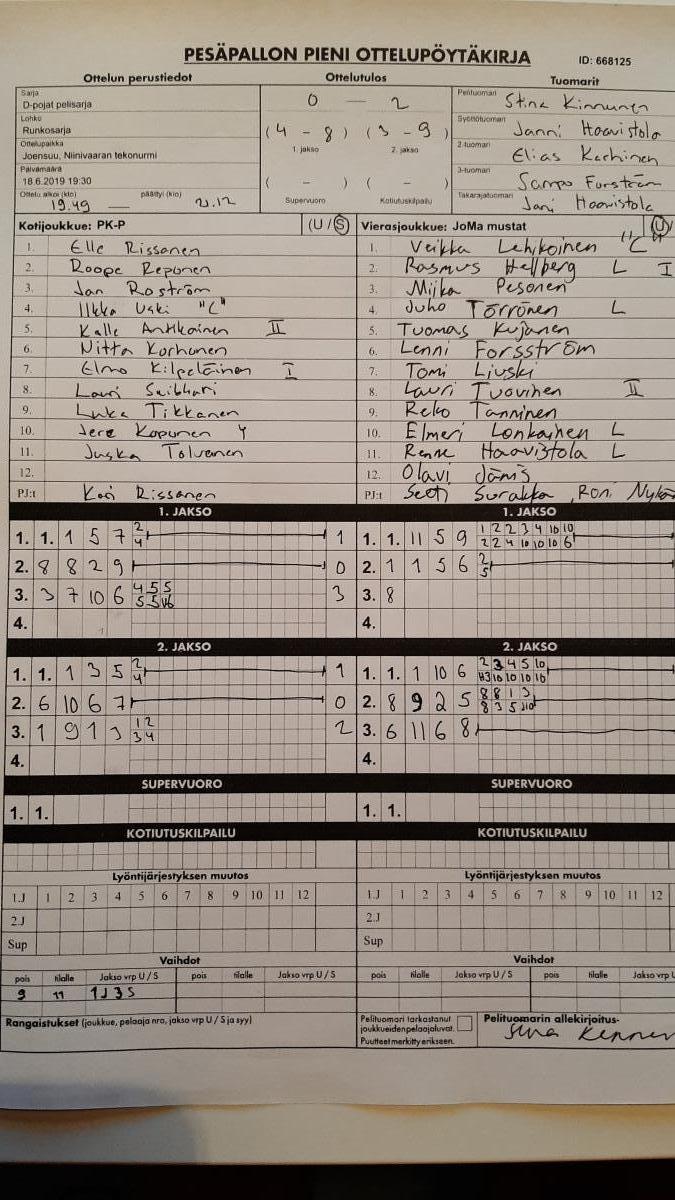 PESÄPALLON PIENI OTTELUPÖYTÄKIRJA
ID: 668125
Ottelun perustiedot
Ottelutulos
Tuomarit
Sarja
D-pojat pelisarja
Lohko
Runkosarja
Ottelupaikka
Joensuu, Niinivaaran tekonurmi
Päivämäärä
18.6.2019 19:30
Ottelu alkoi (klo) päättyi (klo)
19.49 — 21.12
0 — 2
(4 – 8) (3 – 9)
1. jakso 2. jakso
( – ) ( – )
Supervuoro Kotiutuskilpailu
Pelituomari
Stina Kinnunen
Syöttötuomari
Janni Haavistola
2-tuomari
Elias Karhinen
3-tuomari
Sampo Forström
Takarajatuomari
Jani Haavistola
Kotijoukkue: PK-P (U / S)
1. Elle Rissanen
2. Roope Reponen
3. Jan Roström
4. Ilkka Uski "C"
5. Kalle Antikainen II
6. Nitta Korhonen
7. Elmo Kilpeläinen I
8. Lauri
9. Luka Tikkanen
10. Jere Kopunen Y
11. Juska Tolvanen
12.
PJ:t Kari Rissanen
Vierasjoukkue: JoMa mustat (U)
1. Veikka Lehikoinen "C"
2. Rasmus Hellberg L I
3. Miika Pesonen
4. Juho Törrönen L
5. Tuomas Kujanen
6. Lenni Forsström
7. Tomi Livski
8. Lauri Tuovinen II
9. Reko Tanninen
10. Elmeri Lonkainen L
11. Renne Haavistola L
12. Olavi Jänis
PJ:t Surakka, Roni
1. JAKSO
1. 1. 1 5 7 2 1
4
2. 8 8 2 9 0
3. 3 7 10 6 4 5 5 3
5 5 V6
4.
1. JAKSO
1. 1. 11 5 9 1 2 2 3 4 10 10
2 2 4 10 10 10 6
2. 1 1 5 6 2
5
3. 8
4.
2. JAKSO
1. 1. 1 3 5 2 1
4
2. 6 10 6 7 0
3. 1 9 1 3 1 2 2
3 4
4.
2. JAKSO
1. 1. 1 10 6 2 3 4 5 10
H3 10 10 10 10
2. 8 9 2 5 8 8 1 3
8 3 5 J10
3. 6 11 6 8
4.
SUPERVUORO
1. 1.
SUPERVUORO
1. 1.
KOTIUTUSKILPAILU
KOTIUTUSKILPAILU
Lyöntijärjestyksen muutos
1.J 1 2 3 4 5 6 7 8 9 10 11 12
2.J
Sup
Lyöntijärjestyksen muutos
1.J 1 2 3 4 5 6 7 8 9 10 11 12
2.J
Sup
Vaihdot
pois tilalle Jakso vrp U / S pois tilalle Jakso vrp U / S
9 11 1J 3S
Vaihdot
pois tilalle Jakso vrp U / S pois tilalle Jakso vrp U
Rangaistukset (joukkue, pelaaja nro, jakso vrp U / S ja syy)
Pelituomari tarkastanut
joukkueiden pelaajaluvat.
Puutteet merkitty erikseen.
Pelituomarin allekirjoitus-